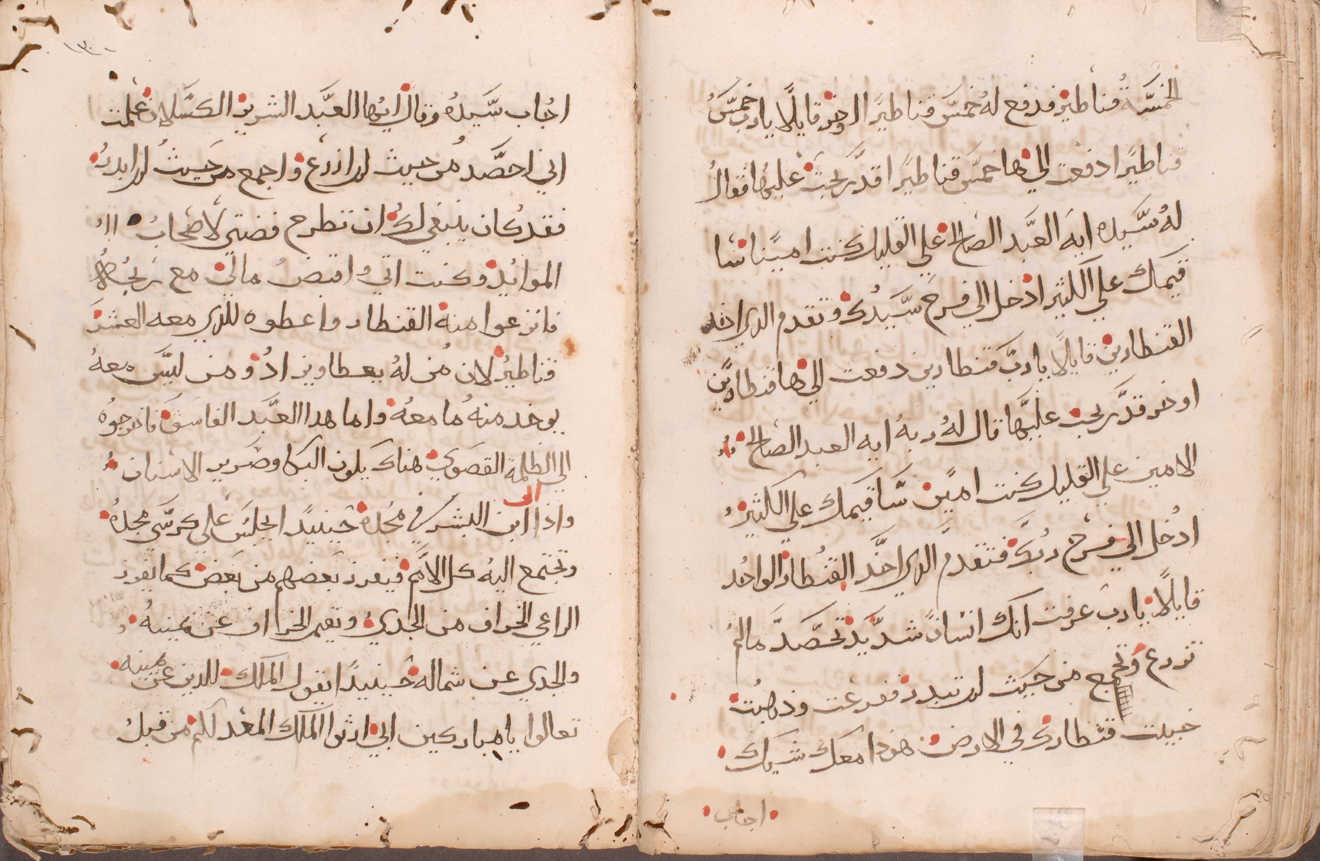 الخمسة قناطير فدفع له خمس قناطيرا اخر قايلا يارب خمس
قناطيرا ادفعت الي هاخمس قناطيرا قد ربحت عليها فقال
له سيده ايه العبد الصالح علي القليل كنت امينا انا
قيمك علي الكثير ادخل الي فرح سيدك وتقدم الدي اخد
القنطارين قايلا يارب قنطارين دفعت الي ها قنطارين
اخر قد ربحت عليها قال له ربه ايه العبد الصالح
الامين علي القليل كنت امين انا قيمك علي الكثير
ادخل الي فرح ربك فتقدم الدي اخد القنطار الواحد
قايلا يارب عرفت انك انسان شديد تحصد مالم
تزرع وتجمع من حيث لم تبدر ففزعت وذهبت
خبيت قنطارك في الارض هودا معك شيك
اجاب
١٣٠
اجاب سيده وقال ايها العبد الشرير الكسلان علمت
اني احصد من حيث لم ازرع واجمع من حيث لم ابدر
فقد كان ينبغي لك ان تطرح فضتي لاصحاب
الموايد وكنت اتي اقبض مالي مع ربحه
فانزعوا منه القنطار واعطوه للدي معه العشر
قناطير لان من له يعطا ويزاد ومن ليس معه
يوخد منه مامعه واما هدا العبد الفاسق فاخرجوه
الي الظلمة القصوي هناك يكون البكا وصرير الاسنان
واذا اتى ابن البشر في مجده حينيد اجلس علي كرسي مجده
وتجتمع اليه كل الامم فيفرز بعضهم من بعض كما يفرز
الراعي الخراف من الجدي ويقيم الخراف عن يمينه
والجدي عن شماله حينيدا يقول الملك للدين عن يمينه
تعالوا يا مباركين ابي ارثوا الملك المعد لكم من قبل